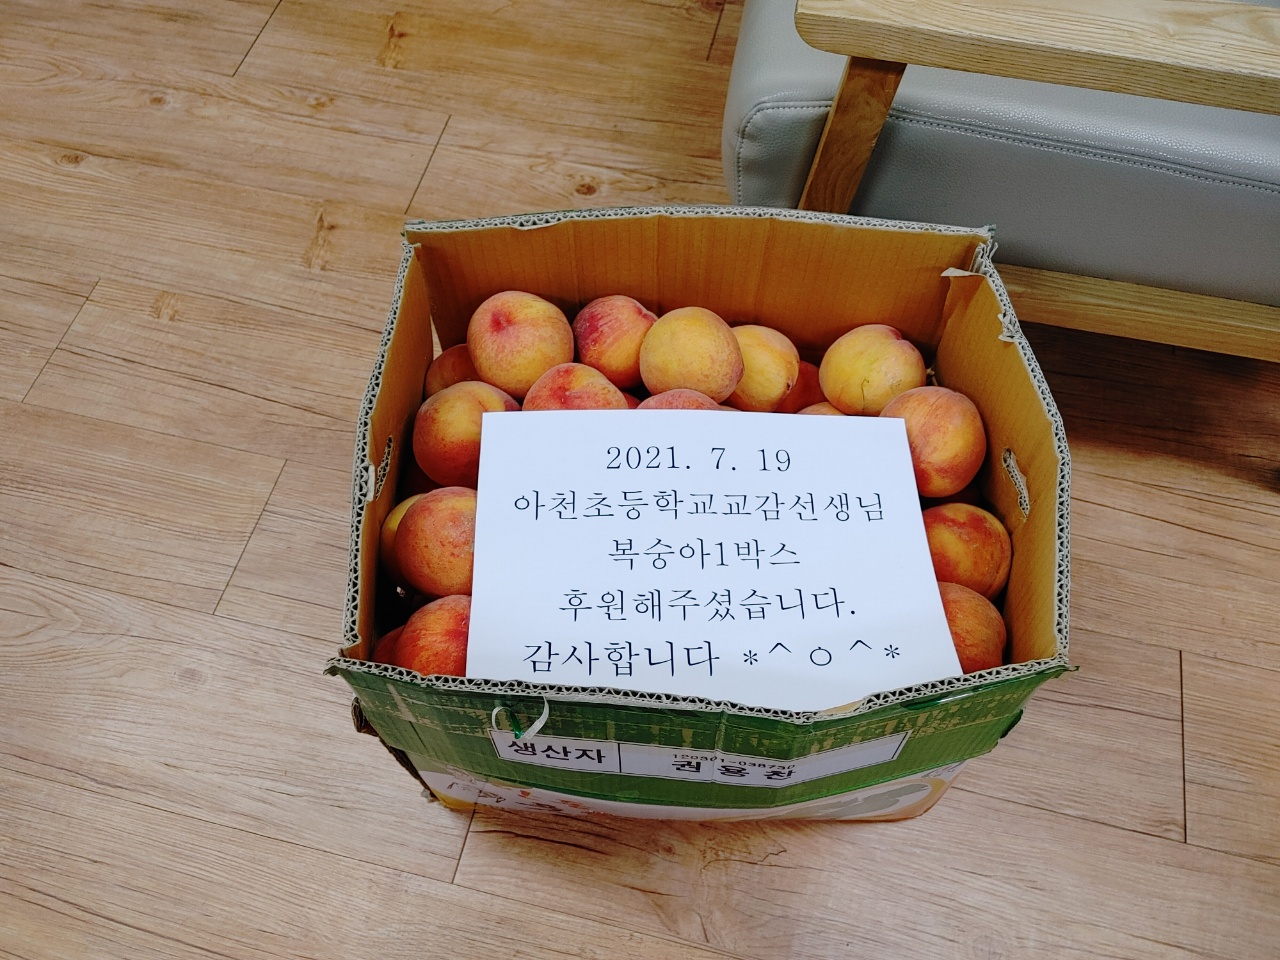 2021. 7. 19
아천초등학교교감선생님
복숭아1박스
후원해주셨습니다.
감사합니다 *^ㅇ^*
생산자
120301-038730
권용찬